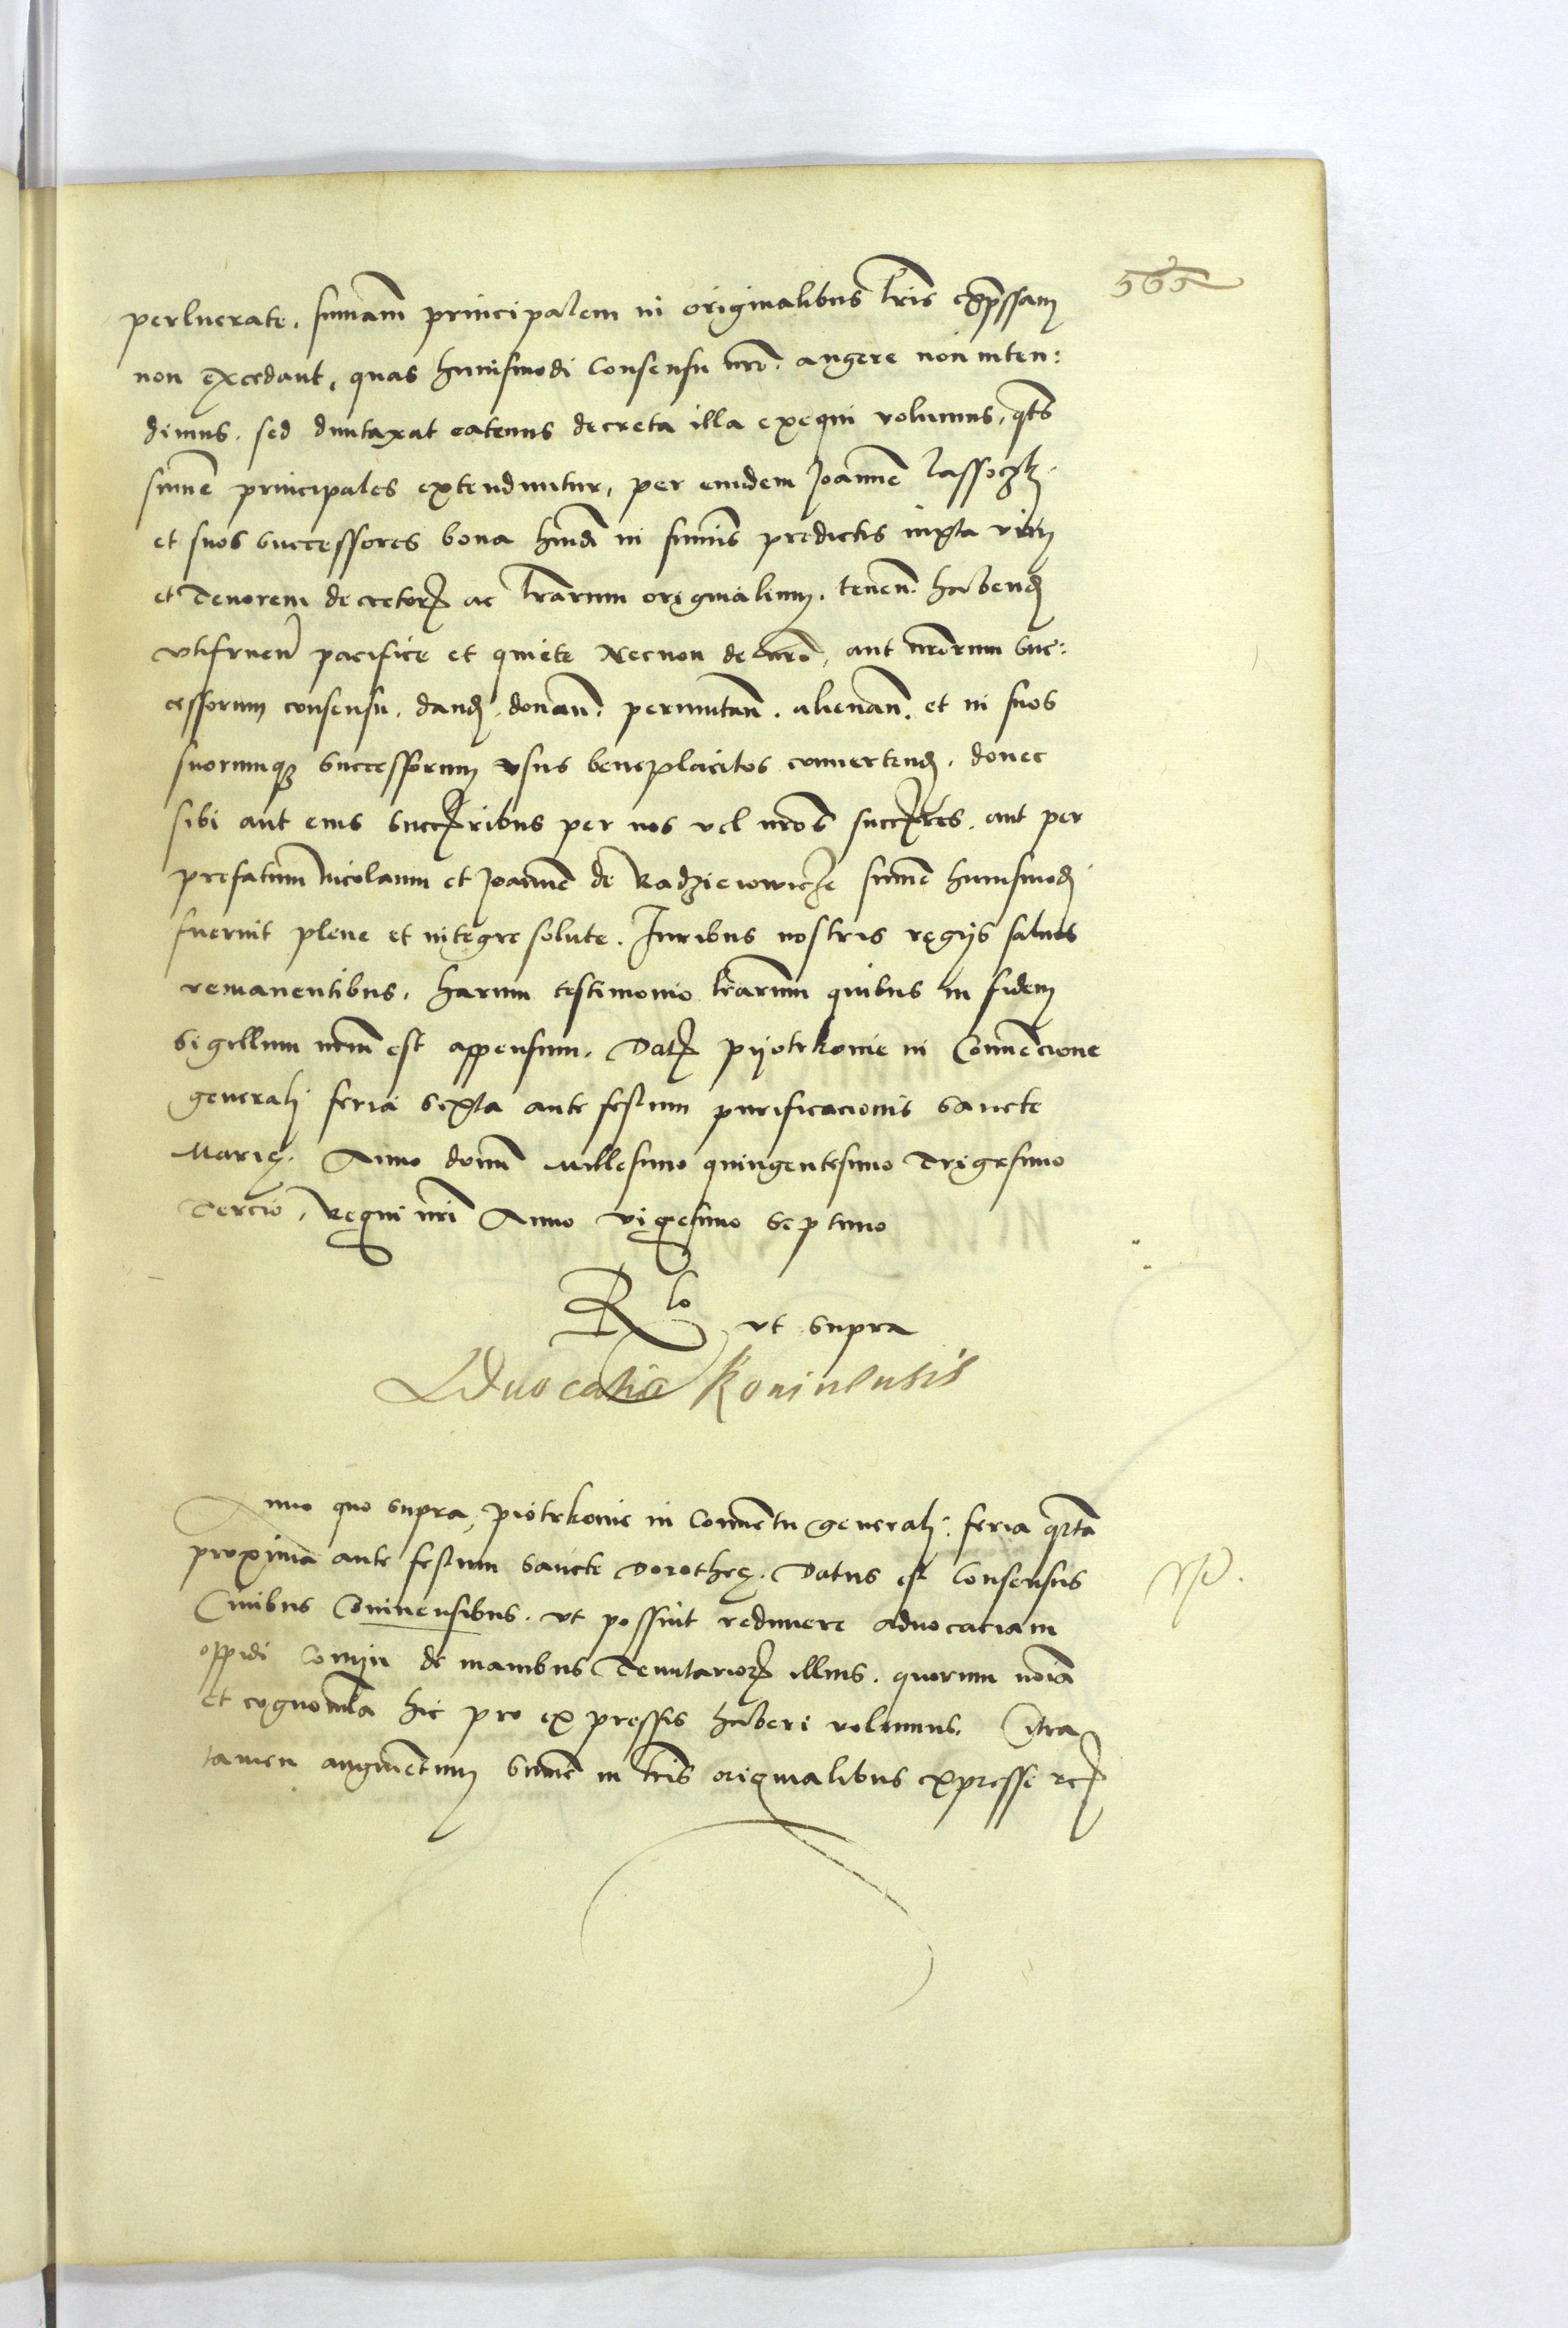 565
perlucrate. summam principalem in originalibus lris exp̄ssam
non excedant, quas huiusmodi Consensu nrō. augere non inten:
dimus. sed duntaxat eatenus decreta illa exequi volumus, qts
summe principales extenduntur, per eundem Joannē Lassoczkj
et suos successores bona hmōi in summis predictis iuxta vim
et Tenorem decretorꝝ ac lrarum originalium. tenen̄. habendꝭ
vtifruen̄ pacifice et quiete Necnon de nrō, aut nrōrum suc:
cessorum consensu. dandꝭ. donan̄. permutan̄. alienan̄. et in suos
suorumqꝫ successorum vsus beneplacitos convertendꝭ. donec
sibi aut eius succꝭribus per nos vel nrōs succꝭres. aut per
prefatum Nicolaum et Joannē de Radzieiowicze summe huiusmodj
fuerint plene et integre solute. Iuribus nostris regijs saluis
remanentibus. harum testimonio lrārum quibus in fidem
sigillum nrm̄ est appensum. Datꝭ pijotrkouie in Conuēcione
generalj feria sexta ante festum purificacionis sancte
Marię. Anno domī Millesimo quingentesimo Trigesimo
Tercio, Regni nrī Anno vigesimo septimo
Rlo ut supra
Aduocatia Koninensis
Anno quo supra, piotrkouie in Conuētu generalj. feria qrta
proxima ante festum sancte Dorotheę. Datus est Consensus
Ciuibus Coninensibus. vt possint redimere aduocatiam
oppidi Conijn de manibus Tenutariorꝝ illius. quorum noīa
et cognomīa hic pro expressis haberi volumus. Citra
tamen augmētum summe in lris originalibus expresse etcꝭ